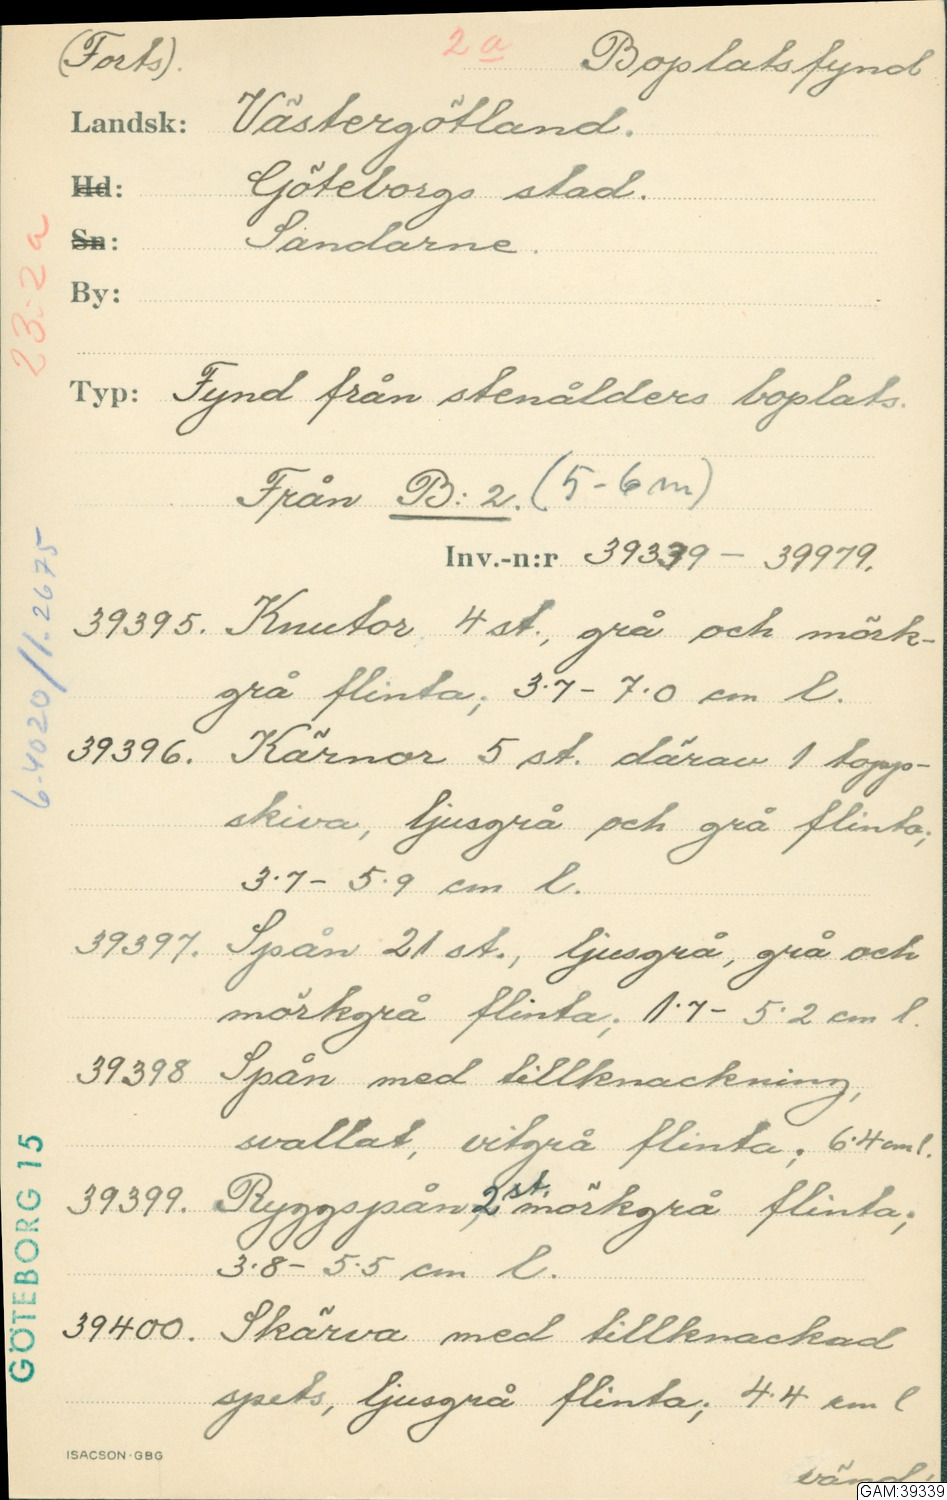 (Forts). 2a Boplatsfynd
Landsk: Västergötland.
Hd: Göteborgs stad.
Sn: Sandarne.
By:
Typ: Fynd från stenålders boplats.
Från B: 2. (5-6 m)
Inv.-n:r 39339 - 39979.
39395. Knutor 4 st., grå och mörk-
grå flinta; 3.7 - 7.0 cm l.
39396. Kärnor 5 st. därav 1 topp-
skiva, ljusgrå och grå flinta;
3.7 - 5.9 cm l.
39397. Spån 21 st., ljusgrå, grå och
mörkgrå flinta; 1.7 - 5.2 cm l.
39398 Spån med tillknackning,
svallat, vitgrå flinta; 6.4 cm l.
39399. Ryggspån, 2 st. mörkgrå flinta;
3.8 - 5.5 cm l.
39400. Skärva med tillknackad
spets, ljusgrå flinta; 4.4 cm l
vänd!
ISACSON·GBG
GAM:39339
23:2a
6.4020/1.2675
GÖTEBORG 15